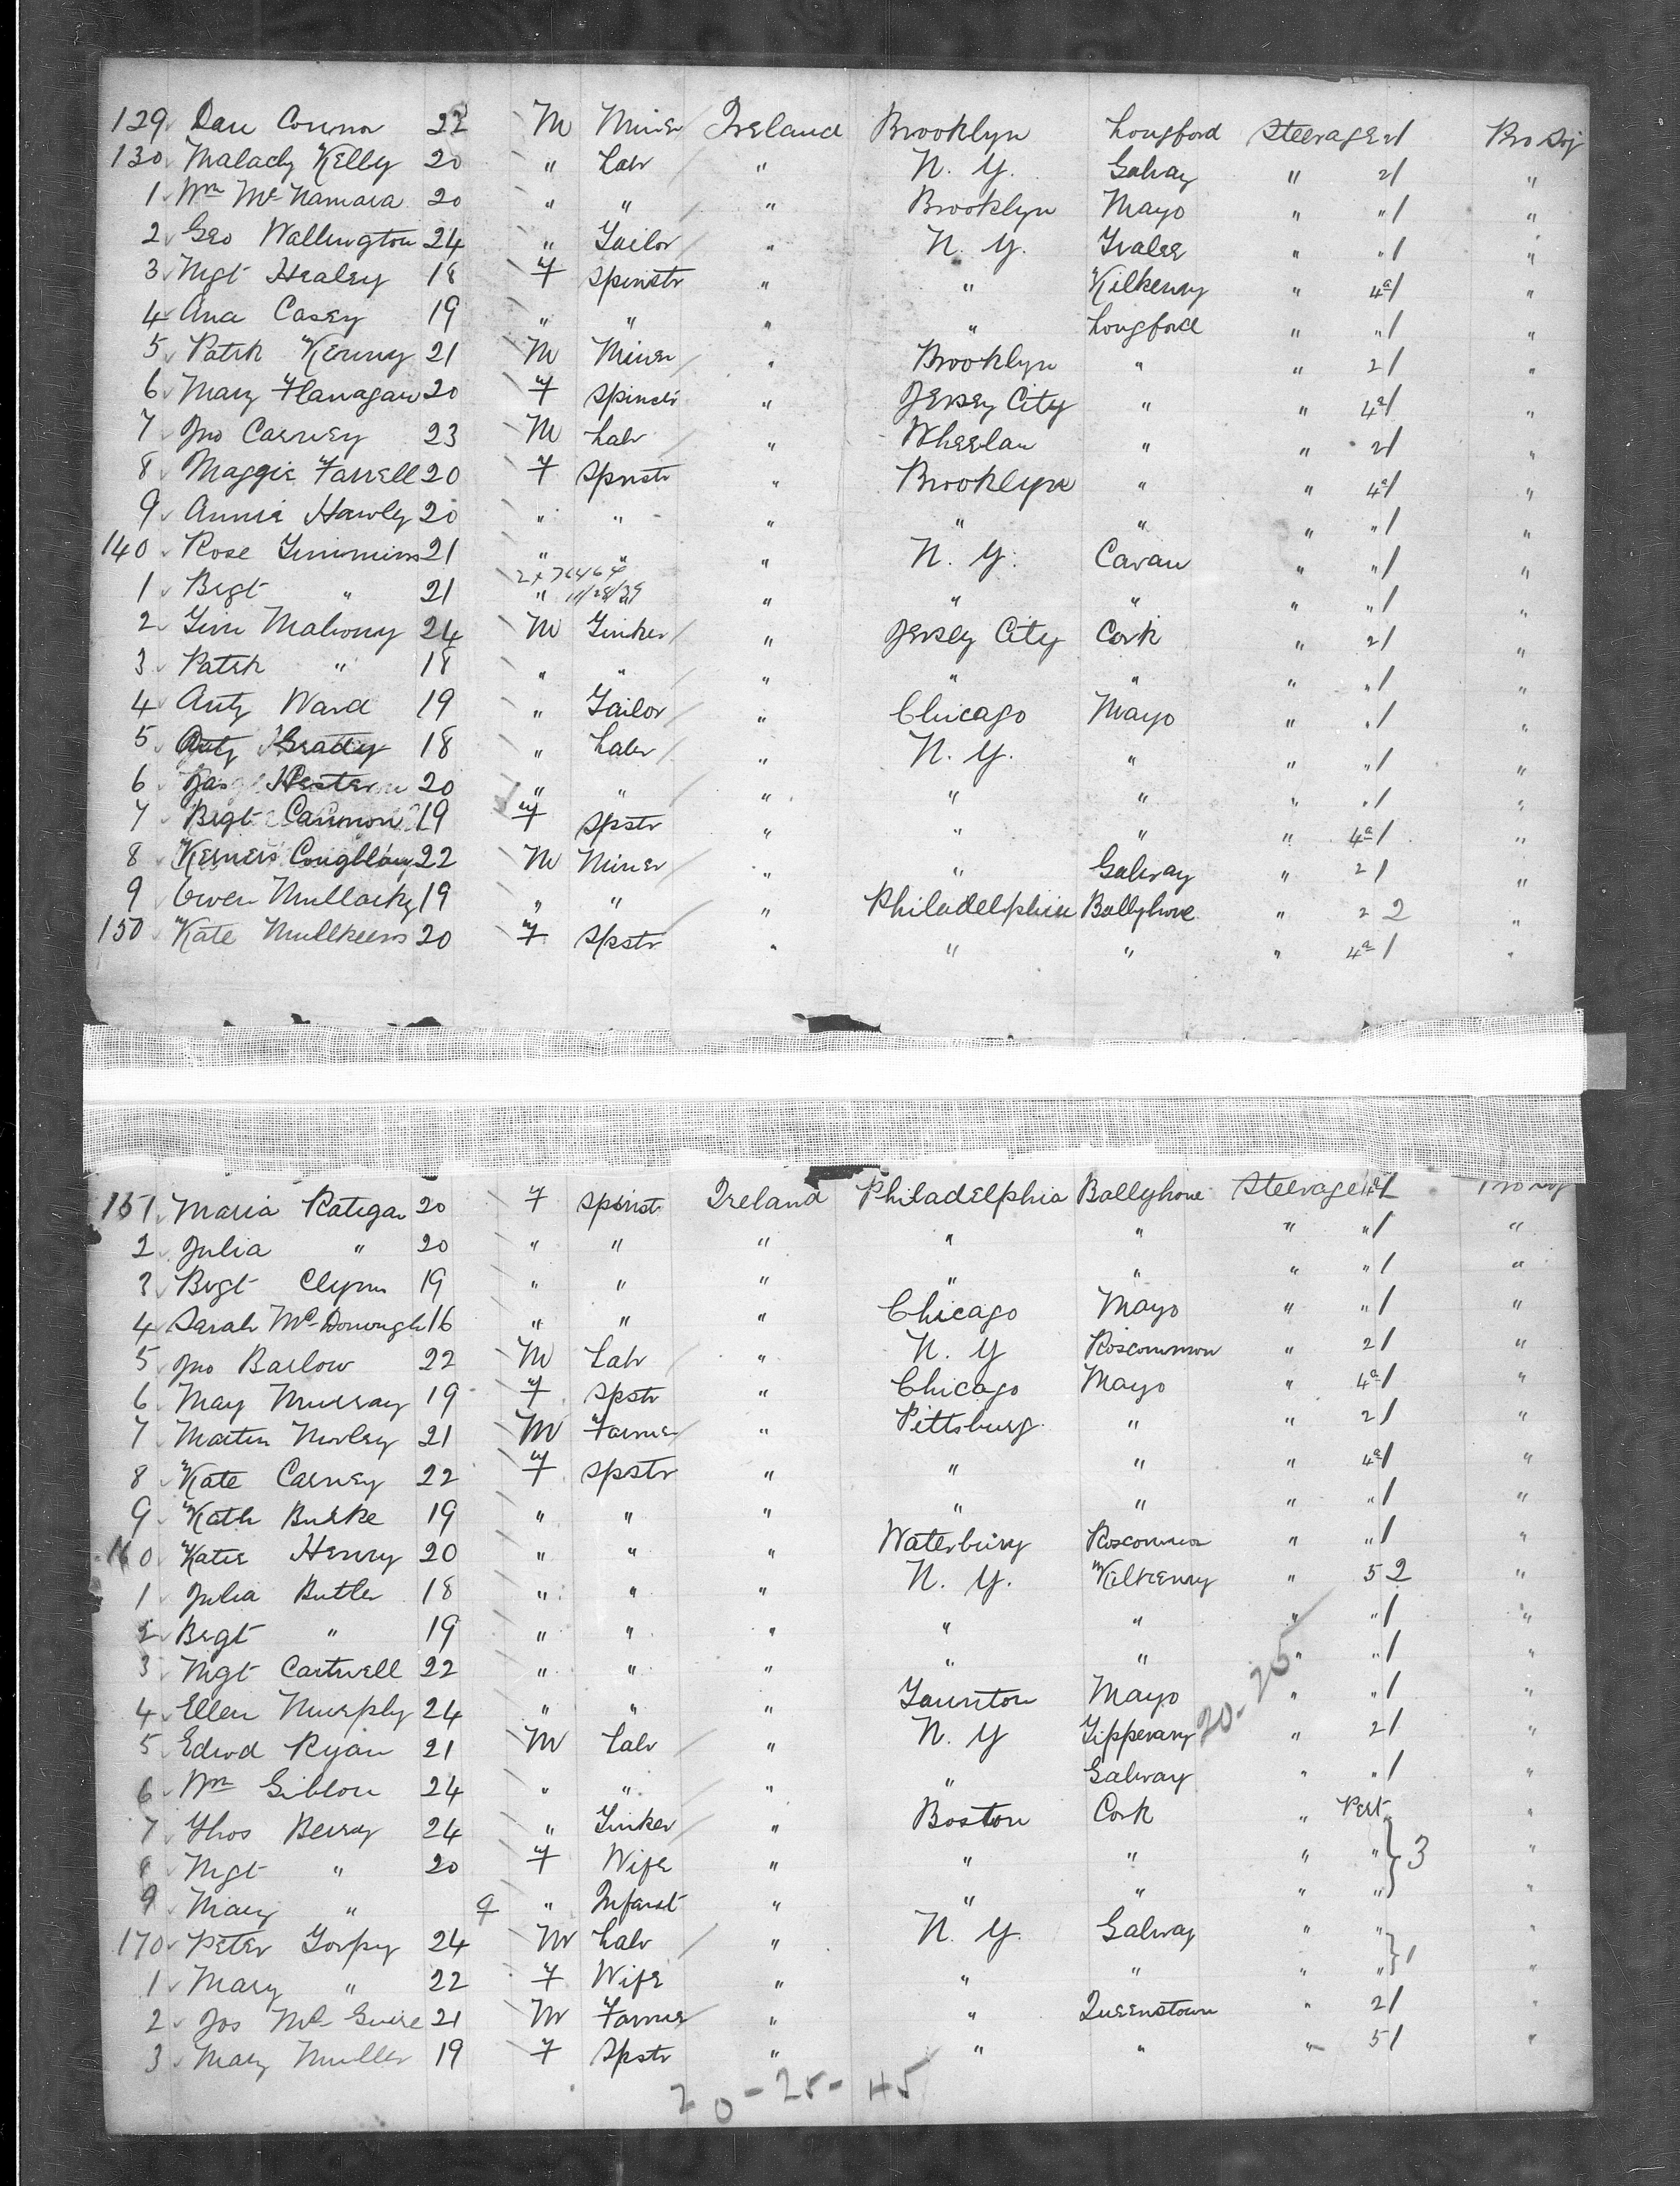 129 Dan Connor 22 M Miner Ireland Brooklyn Longford Steerage 2 1 Pro Soj
130 Malachy Kelly 20 " Labr " N. Y. Galway " 2 1 "
1 Wm McNamara 20 " " " Brooklyn Mayo " " 1 "
2 Geo Wallington 24 " Tailor " N. Y. Tralee " " 1 "
3 Mgt Healey 18 F Spinstr " " Kilkenny " 4a 1 "
4 Ana Casey 19 " " " " Longford " " 1 "
5 Patk Kenny 21 M Miner " Brooklyn " " 2 1 "
6 Mary Flanagan 20 F Spinstr " Jersey City " " 4a 1 "
7 Jno Carney 23 M Labr " Wheelan " " 2 1 "
8 Maggie Farrell 20 F Spnstr " Brooklyn " " 4a 1 "
9 Annie Hawly 20 " " " " " " " 1 "
140 Rose Timmins 21 " " " N. Y. Cavan " " 1 "
2x76464
1 Bigt " 21 " 11/28/39 " " " " " 1 "
2 Tim Mahony 24 M Tinker " Jersey City Cork " 2 1 "
3 Patk " 18 " " " " " " " 1 "
4 Anty Ward 19 " Tailor " Chicago Mayo " " 1 "
5 Anty Grady 18 " Labr " N. Y. " " " 1 "
6 Jas Hester 20 " " " " " " " 1 "
7 Bigt Cannon 19 F Spstr " " " " 4a 1 "
8 Coughlan 22 M Miner " " Galway " 2 1 "
9 Owen Mullarky 19 " " " Philadelphia Ballyhove " 2 2 "
150 Kate Mullkeens 20 F Spstr " " " " 4a 1 "
151 Maria Ratigan 20 F Spinst Ireland Philadelphia Ballyhove Steerage 4a 1
2 Julia " 20 " " " " " " " 1 "
3 Bigt Clynn 19 " " " " " " " 1 "
4 Sarah McDonough 16 " " " Chicago Mayo " " 1 "
5 Jno Barlow 22 M Labr " N. Y Roscommon " 2 1 "
6 May Murray 19 F Spstr " Chicago Mayo " 4a 1 "
7 Martin Morley 21 M Farmer " Pittsburg " " 2 1 "
8 Kate Carney 22 F Spstr " " " " 4a 1 "
9 Kath Burke 19 " " " " " " " 1 "
160 Katie Henry 20 " " " Waterbury Roscommon " " 1 "
1 Julia Butler 18 " " " N. Y. Kilkenny " 5 2 "
2 Bigt " 19 " " " " " " " 1 "
3 Mgt Cantwell 22 " " " " " " " 1 "
4 Ellen Murphy 24 " " " Taunton Mayo 20-25 " " 1 "
5 Edwd Ryan 21 M Labr " N. Y Tipperary " 2 1 "
6 Wm Giblon 24 " " " " Galway " " 1 "
7 Thos Berry 24 " Tinker " Boston Cork " Pert "
8 Mgt " 20 F Wife " " " " " 3 "
9 Mary " 9 " Infant " " " " " "
170 Peter Torpy 24 M Labr " N. Y. Galway " " "
1 Mary " 22 F Wife " " " " " 1 "
2 Jos McGuire 21 M Farmer " " Queenstown " 2 1 "
3 Mary Muller 19 F Spstr " " " " 5 1 "
20-25-45